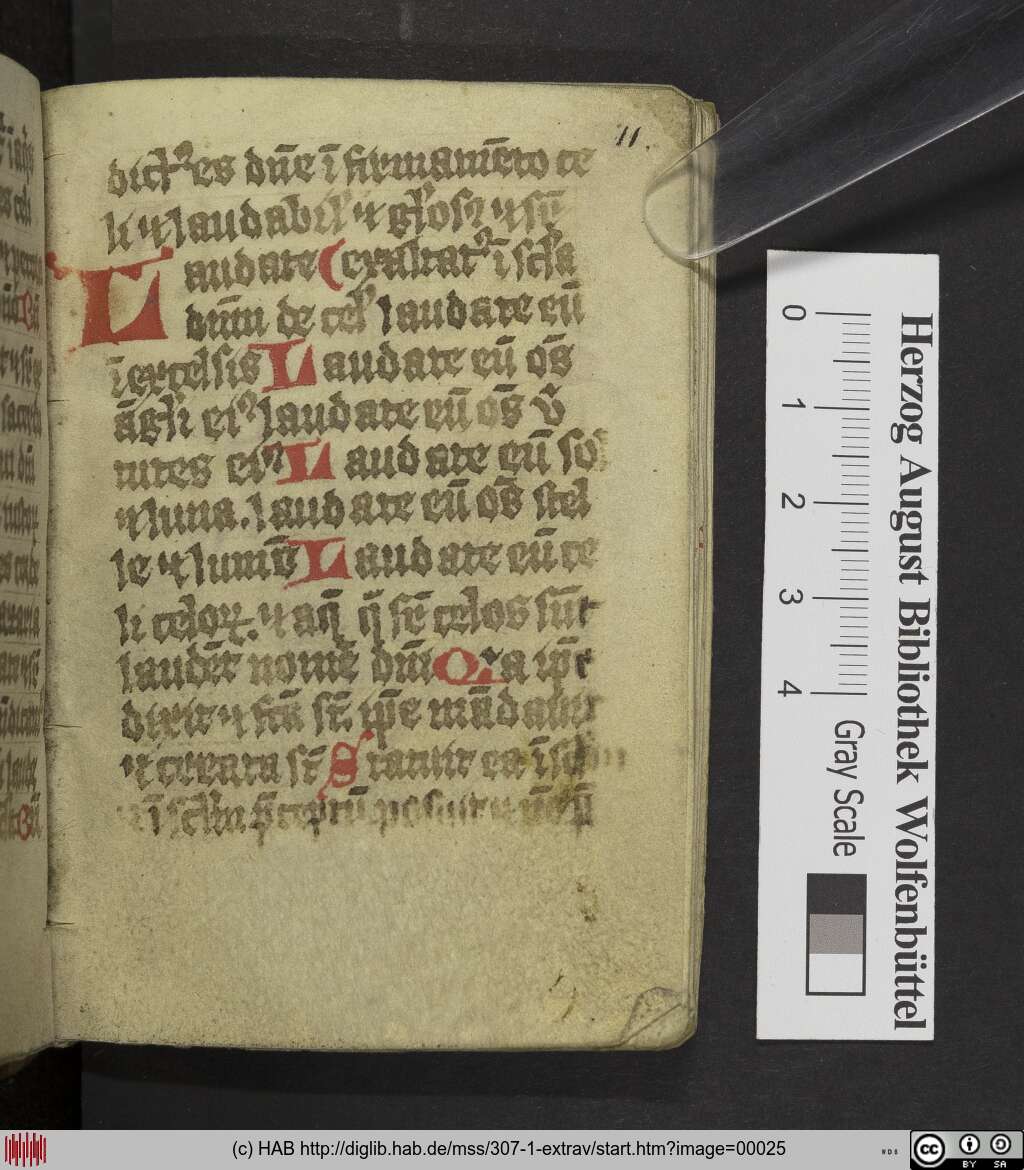 11.
dict᷒ es dn̄e ī firmamēto ce
li ⁊ laudabil᷒ ⁊ gl᷒os᷒ ⁊ i sc̄
Laudate (exaltat᷒ ī scl̄a
dnm̄ de cel᷒ laudate eū
ī excelsis Laudate eū om̄s
āgli ei᷒ laudate eū om̄s v̄
tutes ei᷒ Laudate eū sol
⁊ luna. laudate eū om̄s stel
le ⁊ lumē Laudate eū ce
li celoꝝ. ⁊ aq̄ q̄ sr̄ celos sūt
laudēt nomē dn̄i Q᷒a ip̄e
dixit ⁊ fcā st̄. ip̄e mādauit
⁊ creata st̄ Statuit ea ī
⁊ ī sclm̄ p̄ceptū posuit ⁊
Herzog August Bibliothek Wolfenbüttel
0 1 2 3 4
Gray Scale
(c) HAB http://diglib.hab.de/mss/307-1-extrav/start.htm?image=00025
cc BY SA